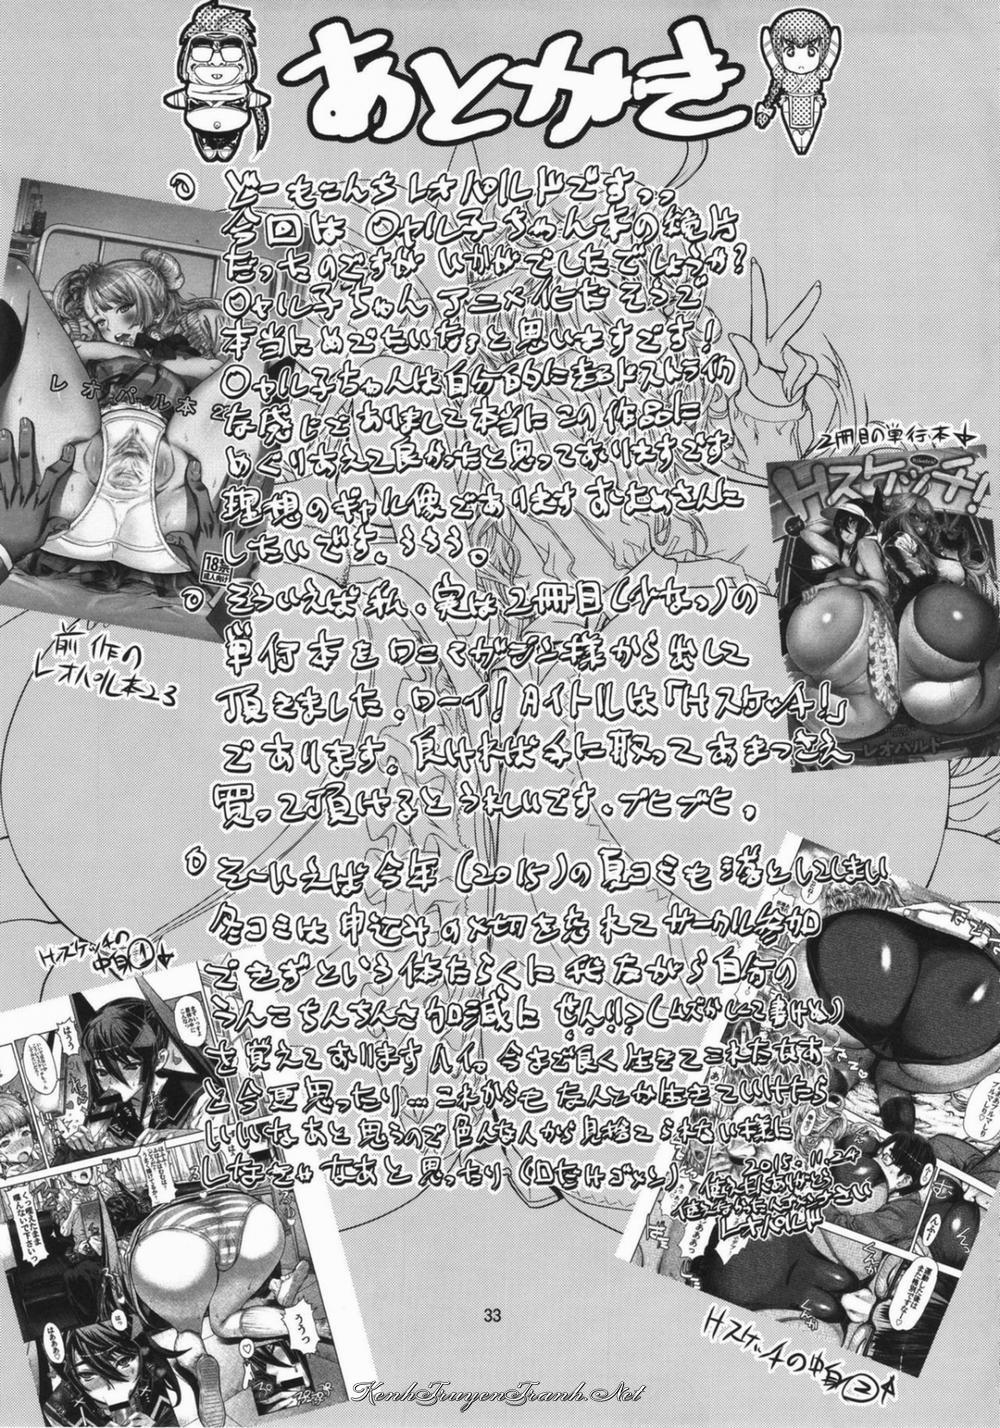 あとがき
どーもこんちレオパルドですっっ
今回は〇ャル子ちゃん本の続片
だったのですがいかがでしたでしょうか?
〇ャル子ちゃんアニメ化だそうで
本当にめでたいなぁと思いますです!
〇ャル子ちゃんは自分的に走るドストライク
な感じでありまして本当にこの作品に
めぐりあえて良かったと思っておりますです
理想のギャル像でありますおしためさんに
したいです。ううう。
そういえば私。実は2冊目(少なっ)の
単行本をワニマガジン様から出して
頂きました。ワーイ!タイトルは「Hスケッチ!」
であります。良ければ手に取ってあまつさえ
買って頂けるとうれしいです。ブヒブヒ。
そーいえば今年(2015)の夏コミも落としてしまい
冬コミは申込みの〆切を忘れてサークル参加
できずという体たらくに我ながら自分の
うんこちんちんさ加減に せんりつ(ムズかしくて書けぬ)
を覚えておりますハイ。今までよく生きてこれたなあ
と今更思ったり…これからもなんとか生きていけたら
いいなあと思うので色んな人から見捨てられない様に
しなきゃなあと思ったり(口だけゴメン)
2015.11.24
レオパルド
2冊目の単行本
Hスケッチ!
レオパルド
レオパル本
18禁
成人向け
前作の
レオパル本23
Hスケッチの
中身①
Hスケッチの中身②
咥えたまま
喋んないで下さいっ
ううっ
はっ
はぁああっ
運動した後は
また格別ですな~♡
んふー
33
KenhTruyenTranh.Net